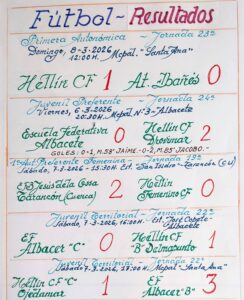 Fútbol - Resultados
Primera Autonómica - Jornada 23ª
Domingo, 8-3-2026
12:00H. Mcpal. "Santa Ana"
Hellín CF 1 At. Ibañés 0
Juvenil Preferente - Jornada 24ª
Viernes, 6-3-2026
20:30H. Mcpal. Nº3 - Albacete
Escuela Federativa Albacete 0 Hellín CF Provimar 2
GOLES: 0-1, M.58' JAIME. 0-2, M.85' JACOBO.
1ª Aut. Preferente Femenina - Jornada 19ª
Sábado, 7-3-2026 - 15:30H. Est. "San Isidro" - Tarancón (CU)
EFB Jesús de la Ossa Tarancón (Cuenca) 2 Hellín Femenino CF 0
Juvenil Territorial - Jornada 22ª
Sábado, 7-3-2026, 16:00H. Est. José Copete - Albacete
EF Albacer "C" 0 Hellín CF "B" Delmapunto 1
Juvenil Territorial - Jornada 22ª
Sábado 7-3-2026, 17:00H. Mcpal. "Santa Ana"
Hellín CF "C" Ojedamar 1 EF Albacer "B" 3